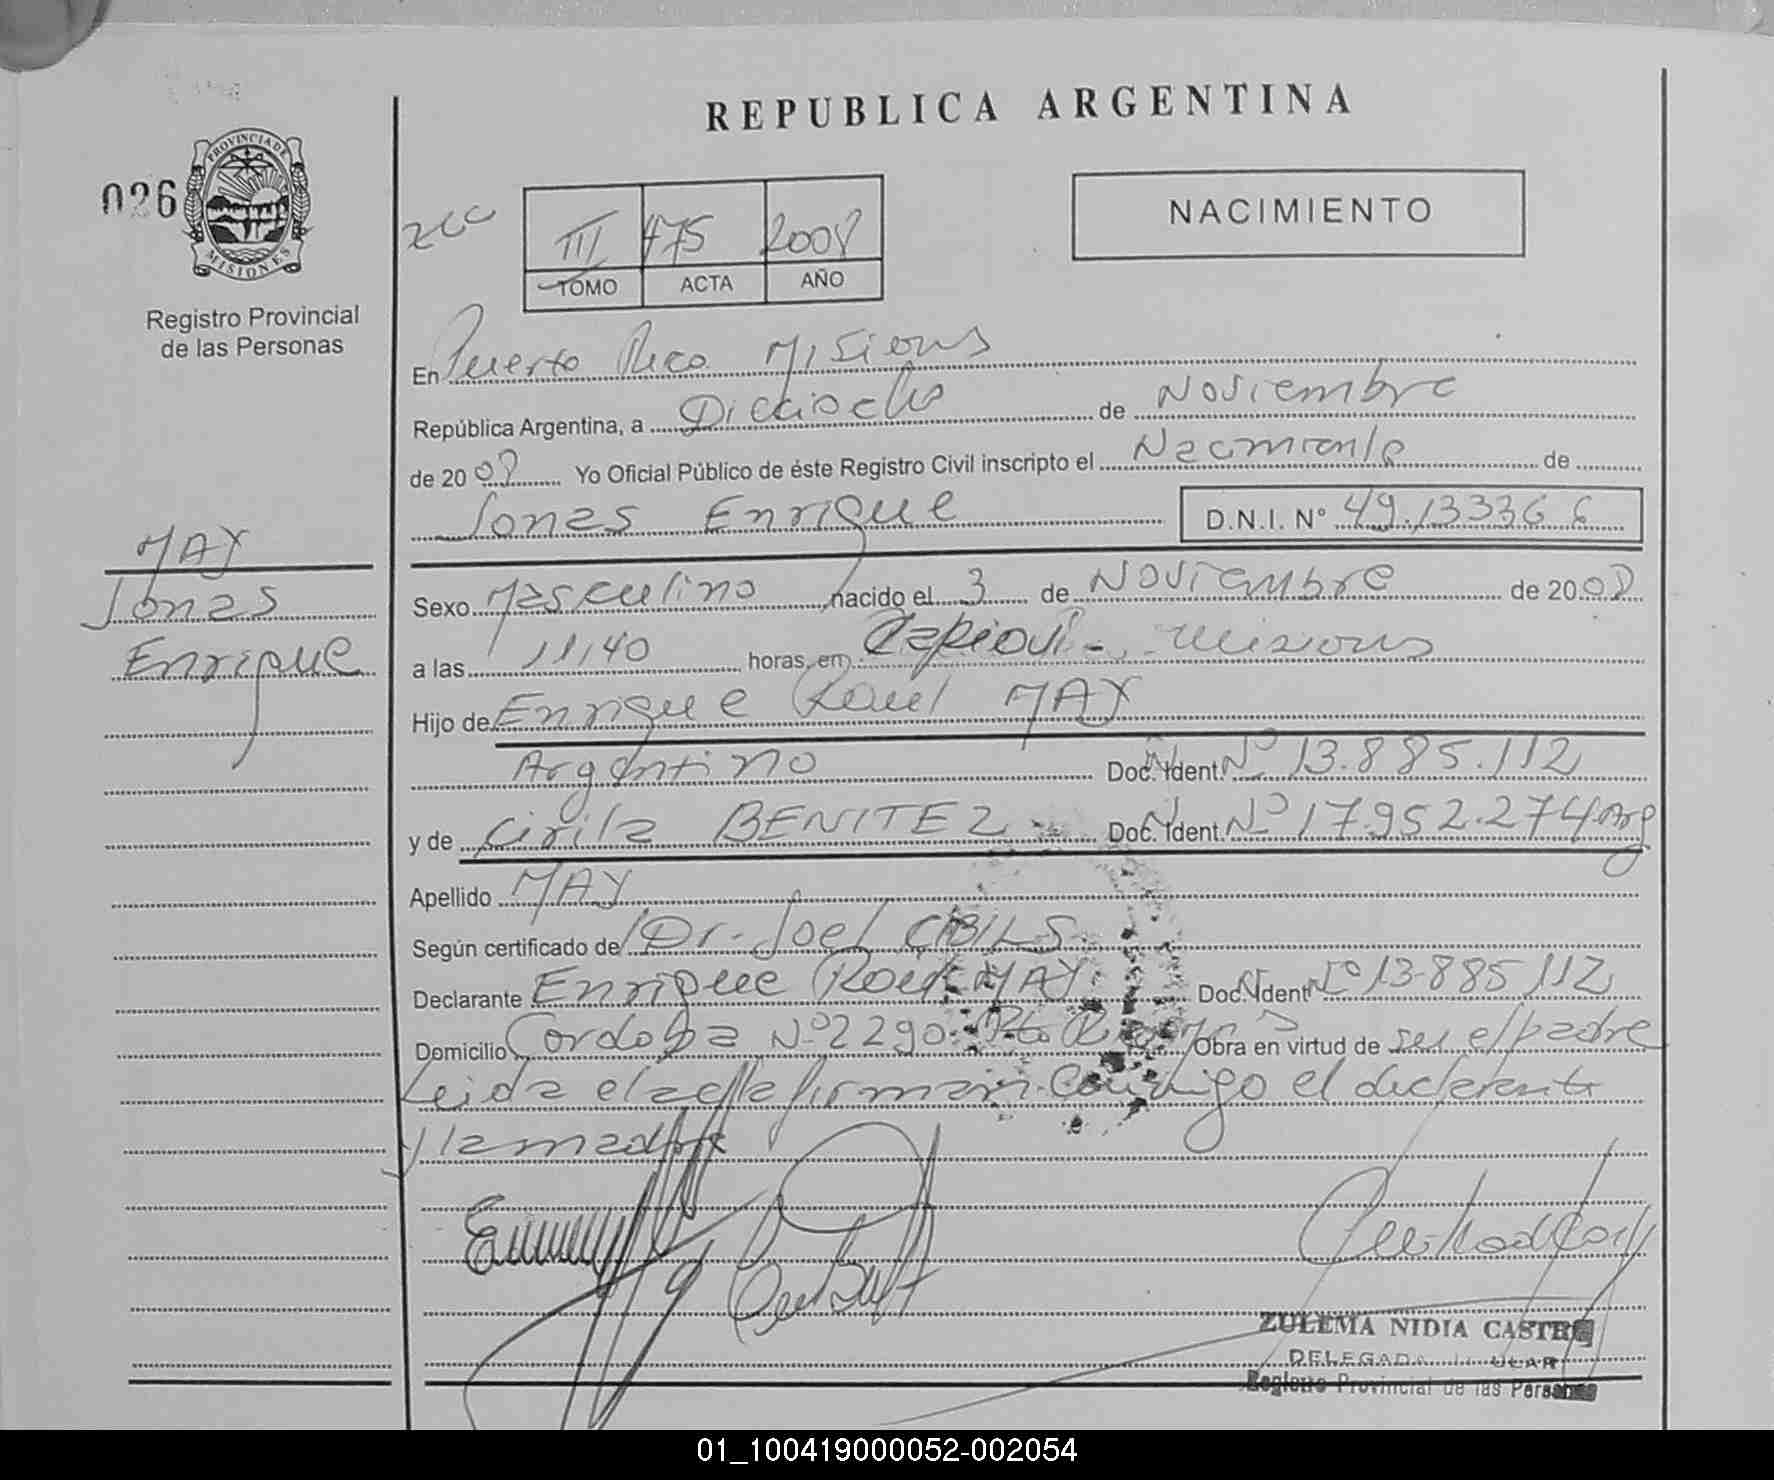 REPUBLICA ARGENTINA
026
PROVINCIA DE
MISIONES
Registro Provincial
de las Personas
NACIMIENTO
III 475 2008
TOMO ACTA AÑO
En Puerto Rico Misiones
República Argentina, a Dieciocho de Noviembre
de 2008 Yo Oficial Público de éste Registro Civil inscripto el Nacimiento de
Jonas Enrique D.N.I. Nº 49.133366
MAY
Jonas
Enrique
Sexo Masculino nacido el 3 de Noviembre de 2008
a las 11,40 horas, en Capiovi - Misiones
Hijo de Enrique Raul MAY
Argentino Doc. Ident. Nº 13.885.112
y de Cirila BENITEZ Doc. Ident. Nº 17.952.274 Arg
Apellido MAY
Según certificado de Dr. Joel CIBILS
Declarante Enrique Raul MAY Doc. Ident Nº 13.885 112
Domicilio Cordoba Nº 2290 Pto Rico Obra en virtud de ser el padre
Leida el acta firman conmigo el declarante
y la madre
ZULEMA NIDIA CASTRO
DELEGADA TITULAR
Registro Provincial de las Personas
01_100419000052-002054